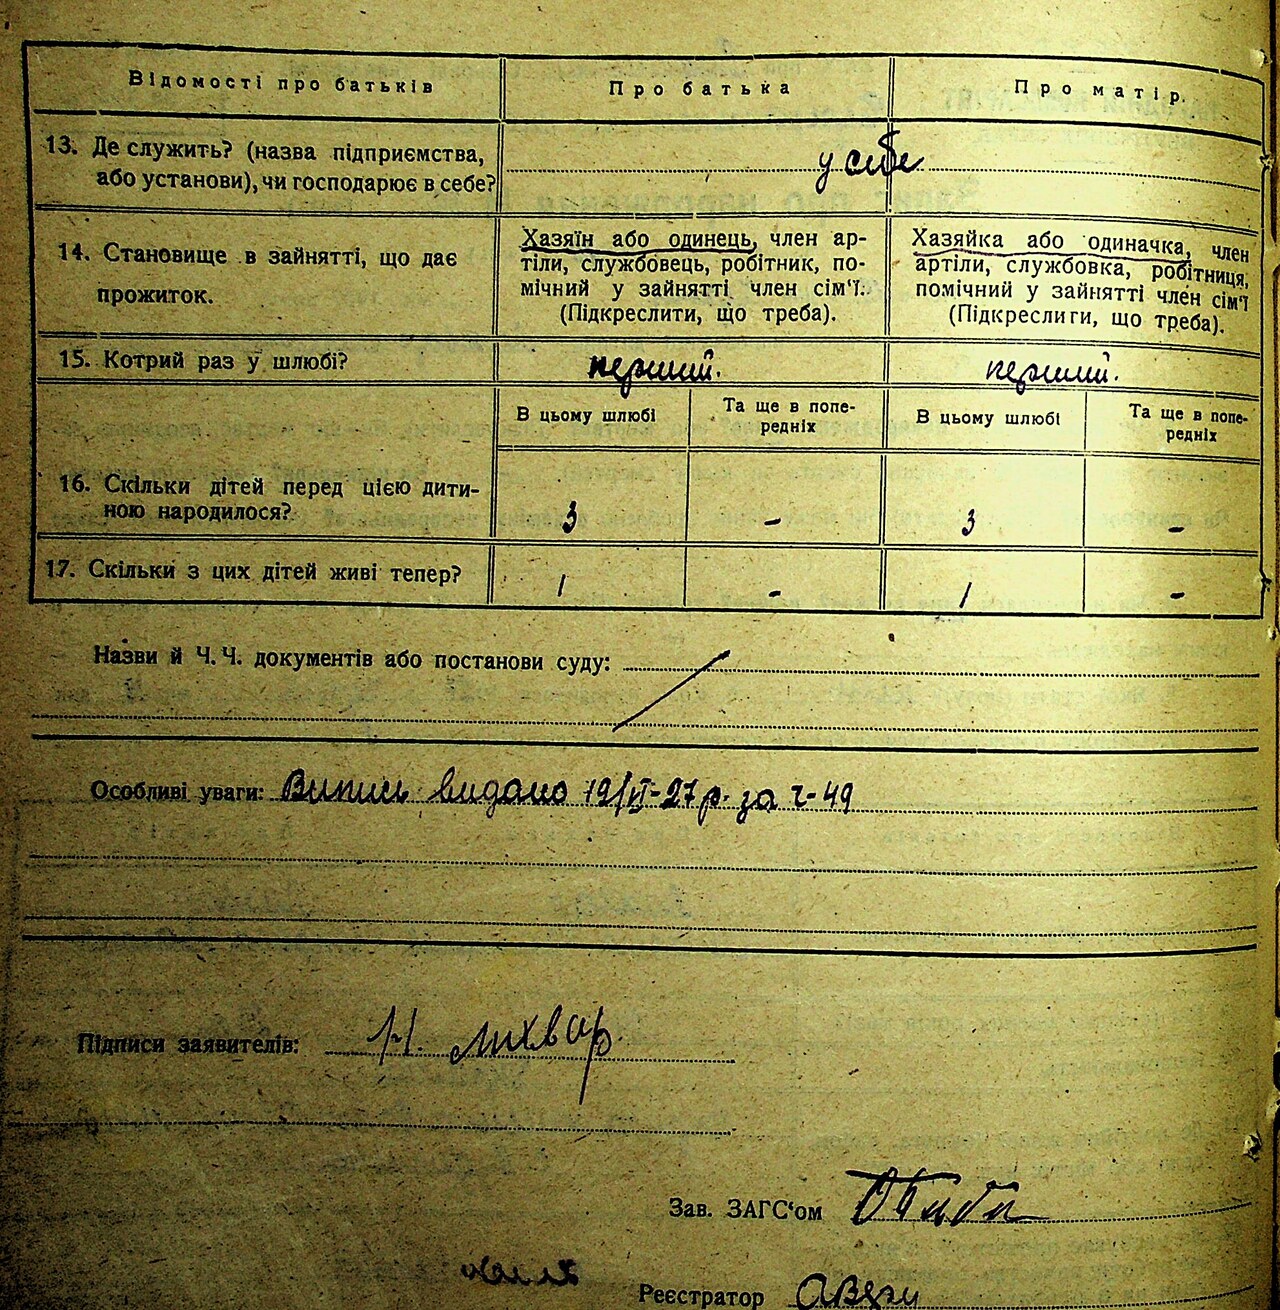 Відомості про батьків Про батька Про матір.
13. Де служить? (назва підприємства,
або установи), чи господарює в себе?
у себе
14. Становище в зайнятті, що дає
прожиток.
Хазяїн або одинець, член ар-
тіли, службовець, робітник, по-
мічний у зайнятті член сім'ї.
(Підкреслити, що треба).
Хазяйка або одиначка, член
артіли, службовка, робітниця,
помічний у зайнятті член сім'ї
(Підкреслити, що треба).
15. Котрий раз у шлюбі? перший. перший.
В цьому шлюбі Та ще в попе-
редніх В цьому шлюбі Та ще в попе-
редніх
16. Скільки дітей перед цією дити-
ною народилося? 3 - 3 -
17. Скільки з цих дітей живі тепер? 1 - 1 -
Назви й Ч. Ч. документів або постанови суду:
Особливі уваги: Випись видано 19/VI-27 р. за ч-49
Підписи заявителів: Н. Лихвар.
Зав. ЗАГС'ом
Реєстратор